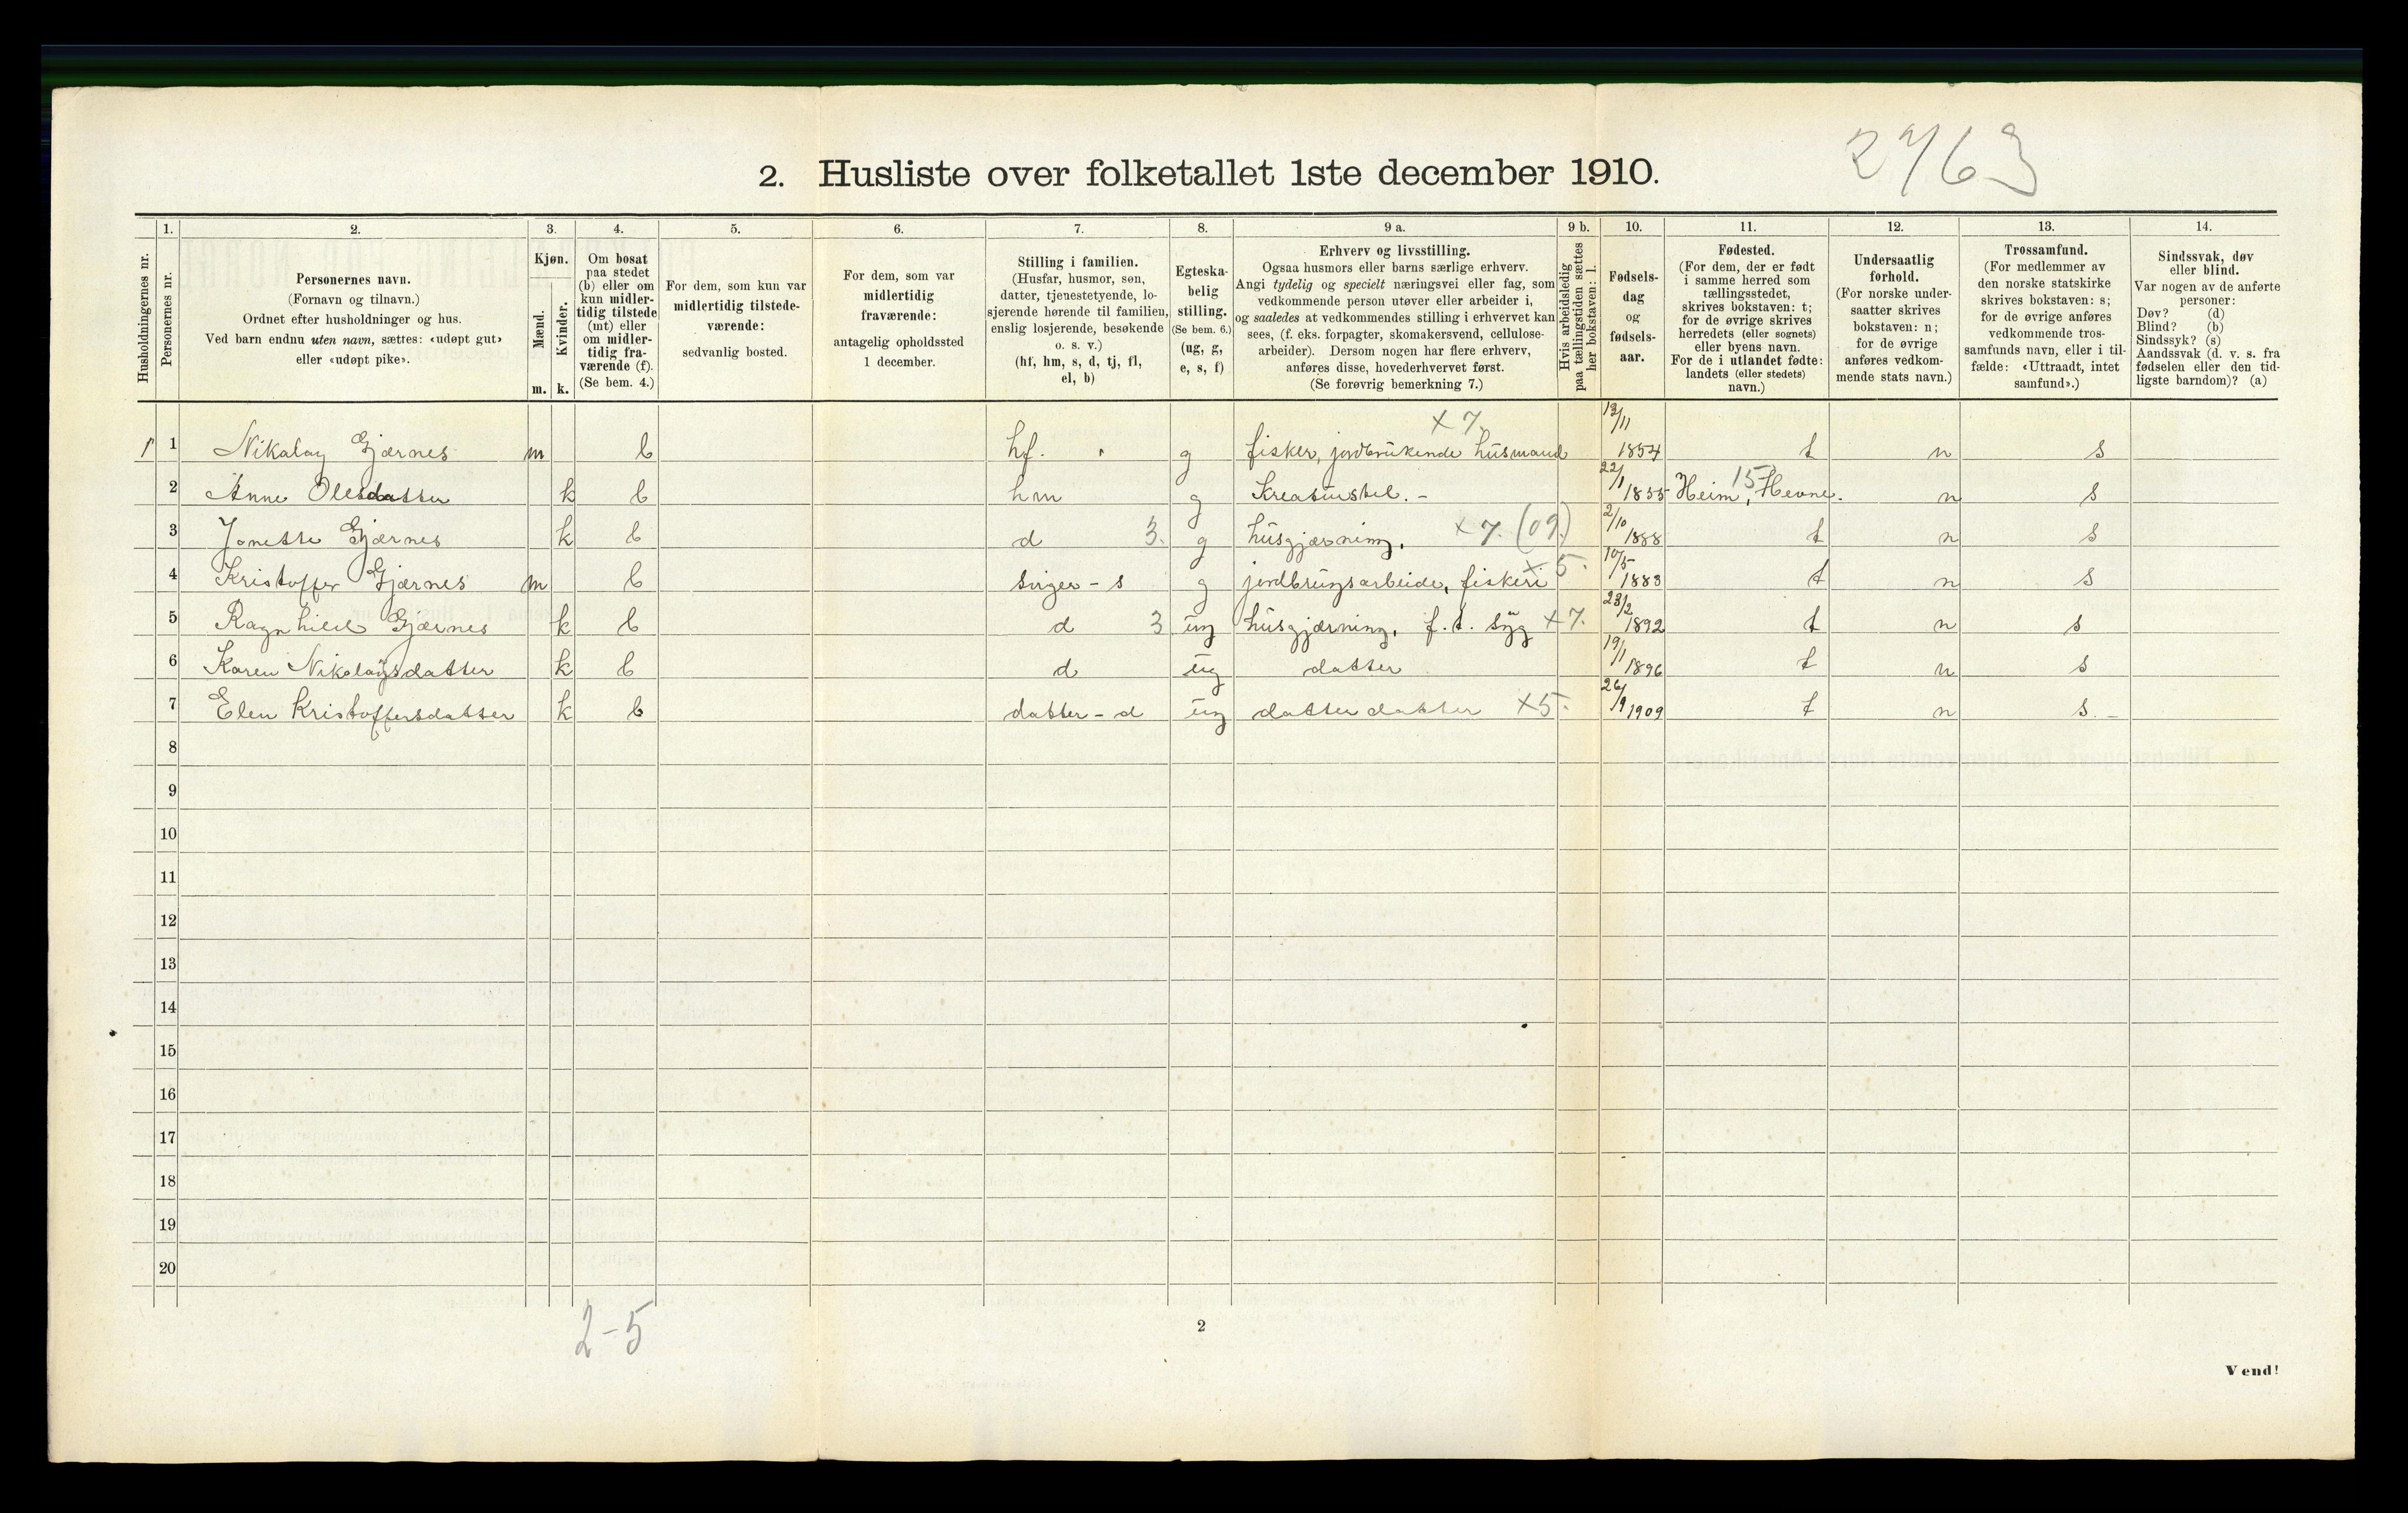 2763
2. Husliste over folketallet 1ste december 1910.
1. 2. 3. 4. 5. 6. 7. 8. 9 a. 9 b. 10. 11. 12. 13. 14.
Husholdningernes nr.
Personernes nr.
Personernes navn.
(Fornavn og tilnavn.)
Ordnet efter husholdninger og hus.
Ved barn endnu uten navn, sættes: «udøpt gut»
eller «udøpt pike».
Kjøn.
Mænd.
Kvinder.
m. k.
Om bosat
paa stedet
(b) eller om
kun midler-
tidig tilstede
(mt) eller
om midler-
tidig fra-
værende (f).
(Se bem. 4.)
For dem, som kun var
midlertidig tilstede-
værende:
sedvanlig bosted.
For dem, som var
midlertidig
fraværende:
antagelig opholdssted
1 december.
Stilling i familien.
(Husfar, husmor, søn,
datter, tjenestetyende, lo-
sjerende hørende til familien,
enslig losjerende, besøkende
o. s. v.)
(hf, hm, s, d, tj, fl,
el, b)
Egteska-
belig
stilling.
(Se bem. 6.)
(ug, g,
e, s, f)
Erhverv og livsstilling.
Ogsaa husmors eller barns særlige erhverv.
Angi tydelig og specielt næringsvei eller fag, som
vedkommende person utøver eller arbeider i,
og saaledes at vedkommendes stilling i erhvervet kan
sees, (f. eks. forpagter, skomakersvend, cellulose-
arbeider). Dersom nogen har flere erhverv,
anføres disse, hovederhvervet først.
(Se forøvrig bemerkning 7.)
Hvis arbeidsledig
paa tællingstiden sættes
her bokstaven: l.
Fødsels-
dag
og
fødsels-
aar.
Fødested.
(For dem, der er født
i samme herred som
tællingsstedet,
skrives bokstaven: t;
for de øvrige skrives
herredets (eller sognets)
eller byens navn.
For de i utlandet fødte:
landets (eller stedets)
navn.)
Undersaatlig
forhold.
(For norske under-
saatter skrives
bokstaven: n;
for de øvrige
anføres vedkom-
mende stats navn.)
Trossamfund.
(For medlemmer av
den norske statskirke
skrives bokstaven: s;
for de øvrige anføres
vedkommende tros-
samfunds navn, eller i til-
fælde: «Uttraadt, intet
samfund».)
Sindssvak, døv
eller blind.
Var nogen av de anførte
personer:
Døv? (d)
Blind? (b)
Sindssyk? (s)
Aandssvak (d. v. s. fra
fødselen eller den tid-
ligste barndom)? (a)
x 7. 13/11
1 1 Nikolay Gjærnes m b hf. g fisker, jordbrukende husmand 1854 t n s
2 Anne Olesdatter k b hm g Kreaturstel. - 22/1 1855 Heim, Hevne. 15 n s
3 Jonette Gjærnes k b d 3. g husgjærning. x 7. (09.) 2/10 1888 t n s
4 Kristoffer Gjærnes m b sviger - s g jordbrugsarbeide, fiskeri x 5. 10/5 1883 t n s
5 Ragnhild Gjærnes k b d 3 ug husgjærning, f. t. syg x 7. 23/2 1892 t n s
6 Karen Nikolaysdatter k b d ug datter 19/1 1896 t n s
7 Elen Kristoffersdatter k b datter - d ug datterdatter x5. 26/9 1909 t n s. -
8
9
10
11
12
13
14
15
16
17
18
19
20
2-5
2
Vend!